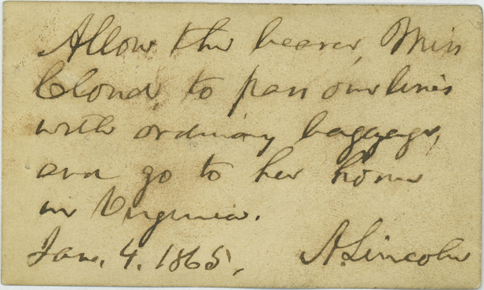 Allow the bearer, Miss
Cloud, to pass our lines
with ordinary baggage,
and go to her home
in Virginia.
Jan. 4. 1865. A. Lincoln